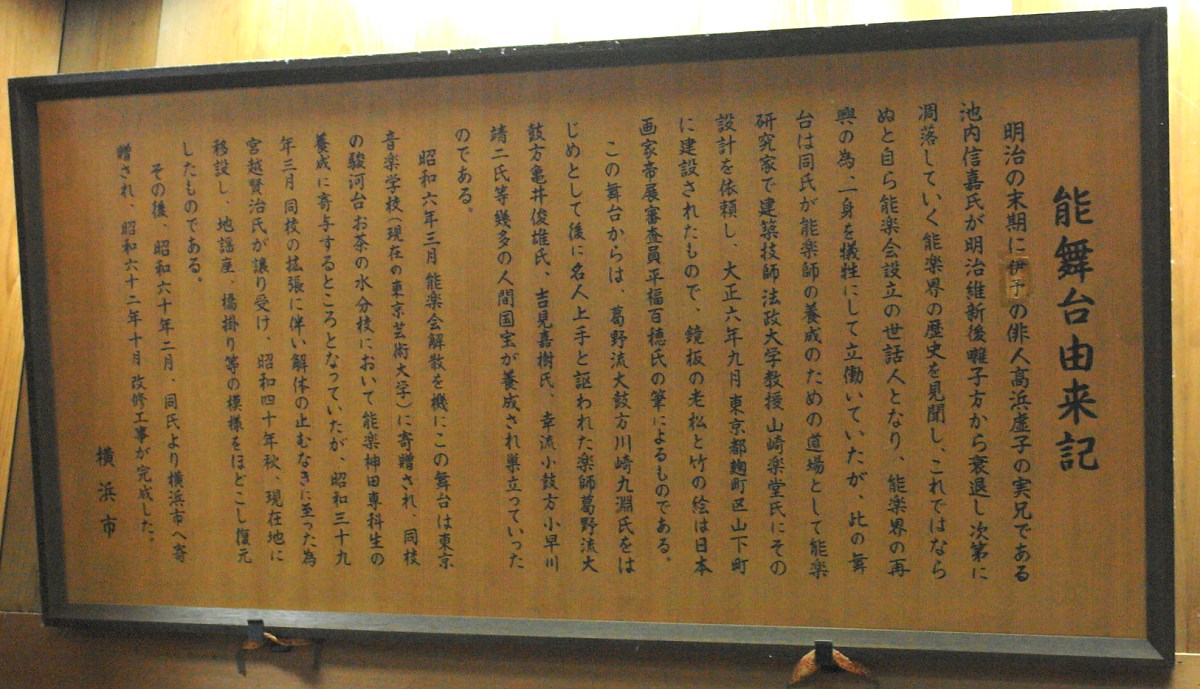 能舞台由来記
明治の末期に伊予の俳人高浜虚子の実兄である
池内信嘉氏が明治維新後囃子方から衰退し次第に
凋落していく能楽界の歴史を見聞し、これではなら
ぬと自ら能楽会設立の世話人となり、能楽界の再
興の為、一身を犠牲にして立働いていたが、此の舞
台は同氏が能楽師の養成のための道場として能楽
研究家で建築技師法政大学教授山崎楽堂氏にその
設計を依頼し、大正六年九月東京都麹町区山下町
に建設されたもので、鏡板の老松と竹の絵は日本
画家帝展審査員平福百穂氏の筆によるものである。
この舞台からは、葛野流大鼓方川崎九淵氏をは
じめとして後に名人上手と謳われた楽師葛野流大
鼓方亀井俊雄氏、吉見嘉樹氏、幸流小鼓方小早川
靖二氏等幾多の人間国宝が養成され巣立っていった
のである。
昭和六年三月能楽会解散を機にこの舞台は東京
音楽学校(現在の東京芸術大学)に寄贈され、同校
の駿河台お茶の水分校において能楽神田専科生の
養成に寄与するところとなっていたが、昭和三十九
年三月同校の拡張に伴い解体の止むなきに至った為
宮越賢治氏が譲り受け、昭和四十年秋、現在地に
移設し、地謡座、橋掛り等の模様をほどこし復元
したものである。
その後、昭和六十年二月、同氏より横浜市へ寄
贈され、昭和六十二年十月改修工事が完成した。
横浜市